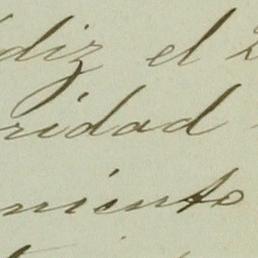 diz el 2
ridad
miento